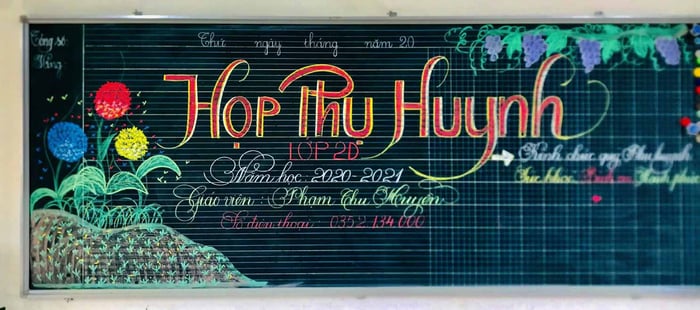 Tổng số:
Vắng:
Thứ ngày tháng năm 20
HỌP PHỤ HUYNH
LỚP 2D
Năm học: 2020-2021
Giáo viên : Phạm Thu Huyền
Số điện thoại: 0352.134.000
Kính chúc quý Phụ huynh
Sức khỏe Bình an Hạnh phúc